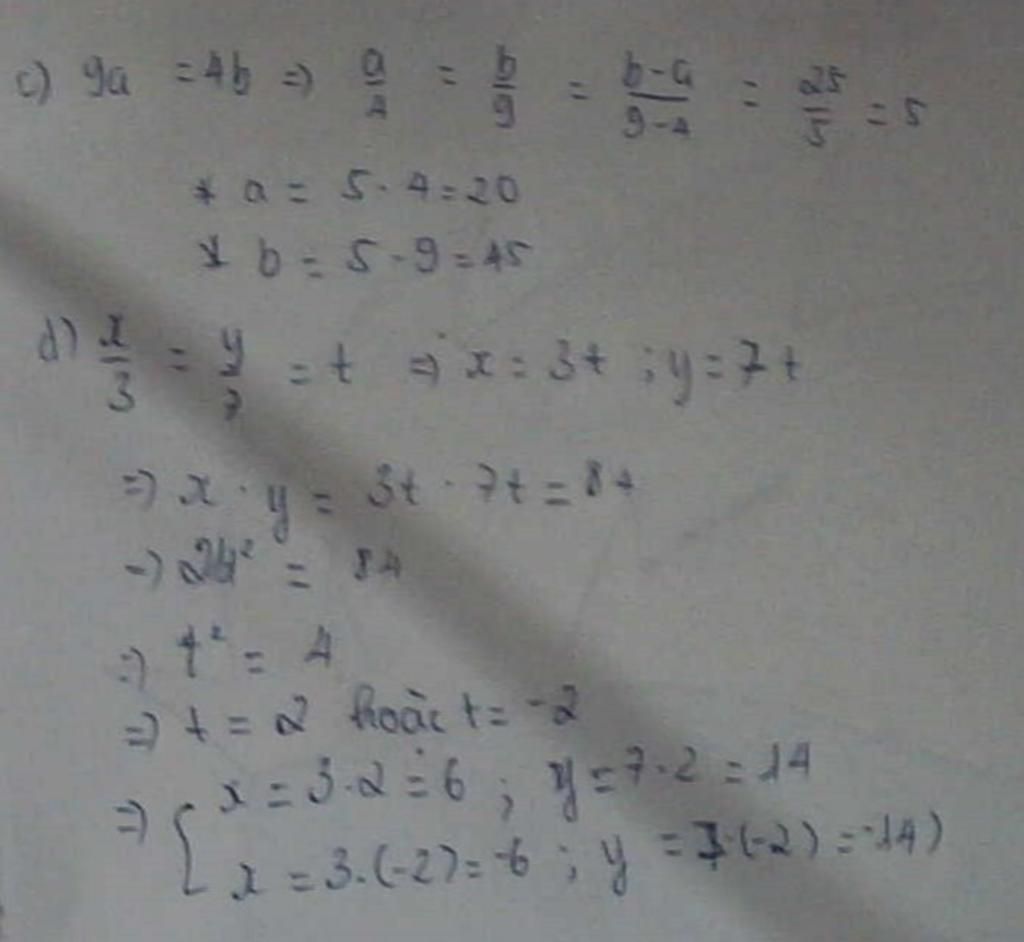 c) 9a = 4b => a/4 = b/9 = b-a/9-4 = 25/5 = 5
* a = 5 . 4 = 20
* b = 5 . 9 = 45
d) x/3 = y/7 = t => x = 3t ; y = 7t
=> x . y = 3t . 7t = 84
=> 21t² = 84
=> t² = 4
=> t = 2 hoặc t = -2
=> { x = 3.2 = 6 ; y = 7.2 = 14
x = 3.(-2) = -6 ; y = 7.(-2) = -14)